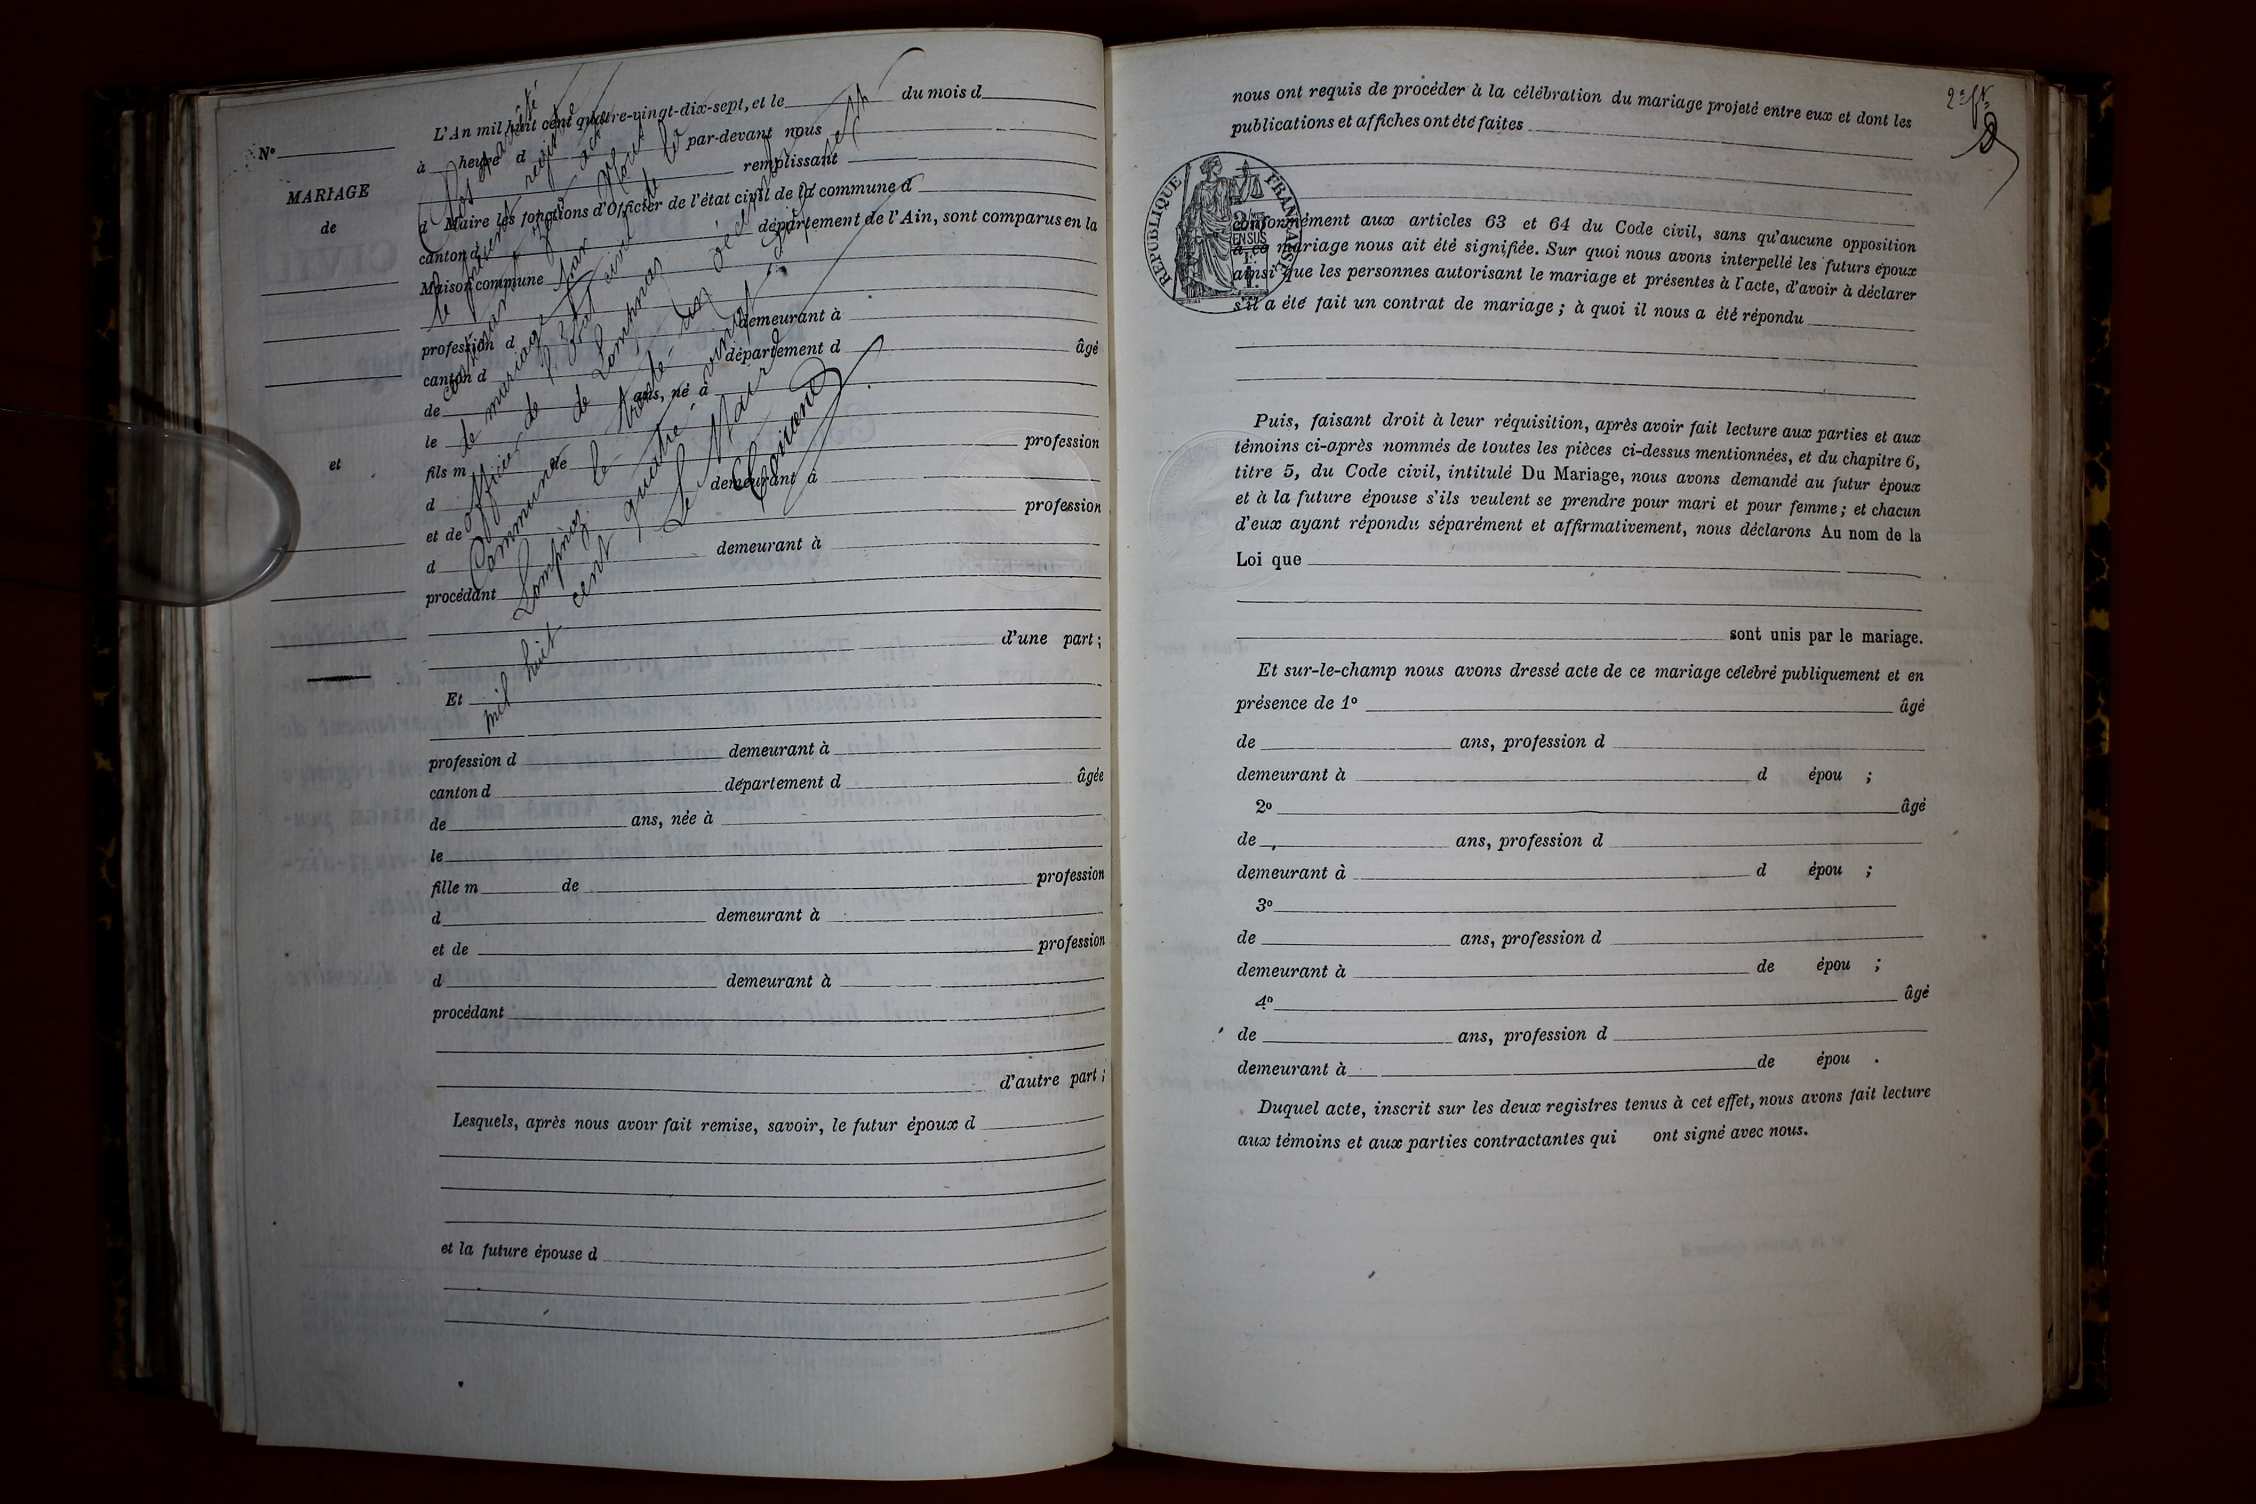 N°
MARIAGE
de
et
L'An mil huit cent quatre-vingt-dix-sept, et le du mois d
à heure d par-devant nous
remplissant
d Maire les fonctions d'Officier de l'état civil de la commune d
canton d département de l'Ain, sont comparus en la
Maison commune
profession d demeurant à
canton d département d âgé
de ans, né à
le
fils m de profession
d demeurant à
et de profession
d demeurant à
procédant
d'une part ;
Et
profession d demeurant à
canton d département d âgée
de ans, née à
le
fille m de profession
d demeurant à
et de profession
d demeurant à
procédant
d'autre part ;
Lesquels, après nous avoir fait remise, savoir, le futur époux d
et la future épouse d
Clos et arrêté
le présent registre
contenant
le mariage par Nous
officier de l'Etat civil de la
Commune de Lompnaz
Lompnaz le trente-un décembre
mil huit cent quatre vingt dix sept
Le Maire
2e ft
nous ont requis de procéder à la célébration du mariage projeté entre eux et dont les
publications et affiches ont été faites
RÉPUBLIQUE FRANÇAISE
conformément aux articles 63 et 64 du Code civil, sans qu'aucune opposition
à ce mariage nous ait été signifiée. Sur quoi nous avons interpellé les futurs époux
ainsi que les personnes autorisant le mariage et présentes à l'acte, d'avoir à déclarer
s'il a été fait un contrat de mariage ; à quoi il nous a été répondu
Puis, faisant droit à leur réquisition, après avoir fait lecture aux parties et aux
témoins ci-après nommés de toutes les pièces ci-dessus mentionnées, et du chapitre 6,
titre 5, du Code civil, intitulé Du Mariage, nous avons demandé au futur époux
et à la future épouse s'ils veulent se prendre pour mari et pour femme ; et chacun
d'eux ayant répondu séparément et affirmativement, nous déclarons Au nom de la
Loi que
sont unis par le mariage.
Et sur-le-champ nous avons dressé acte de ce mariage célébré publiquement et en
présence de 1° âgé
de ans, profession d
demeurant à d épou ;
2° âgé
de ans, profession d
demeurant à d épou ;
3°
de ans, profession d
demeurant à de épou ;
4° âgé
de ans, profession d
demeurant à de épou .
Duquel acte, inscrit sur les deux registres tenus à cet effet, nous avons fait lecture
aux témoins et aux parties contractantes qui ont signé avec nous.